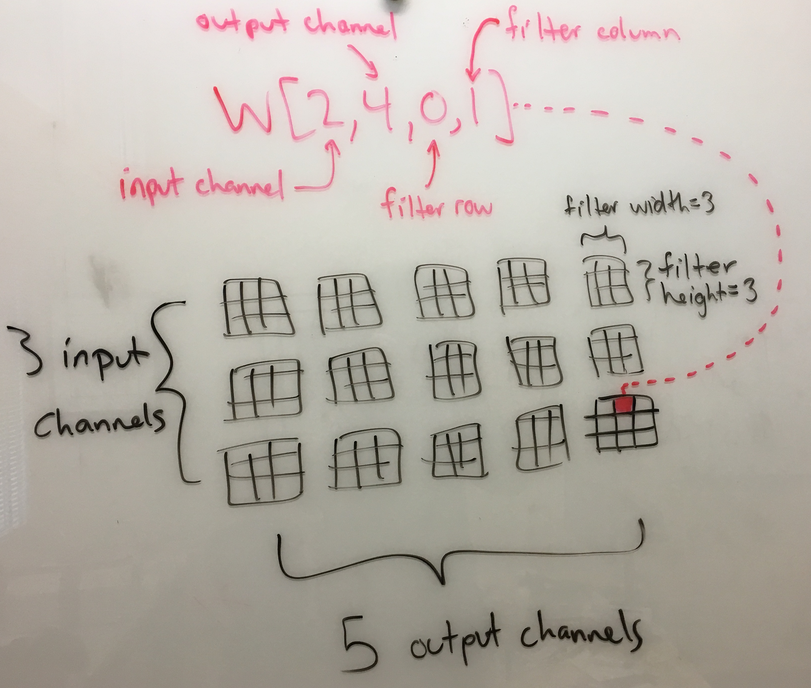 output channel
filter column
W[2,4,0,1]
input channel
filter row
filter width=3
filter
height=3
3 input
channels
5 output channels